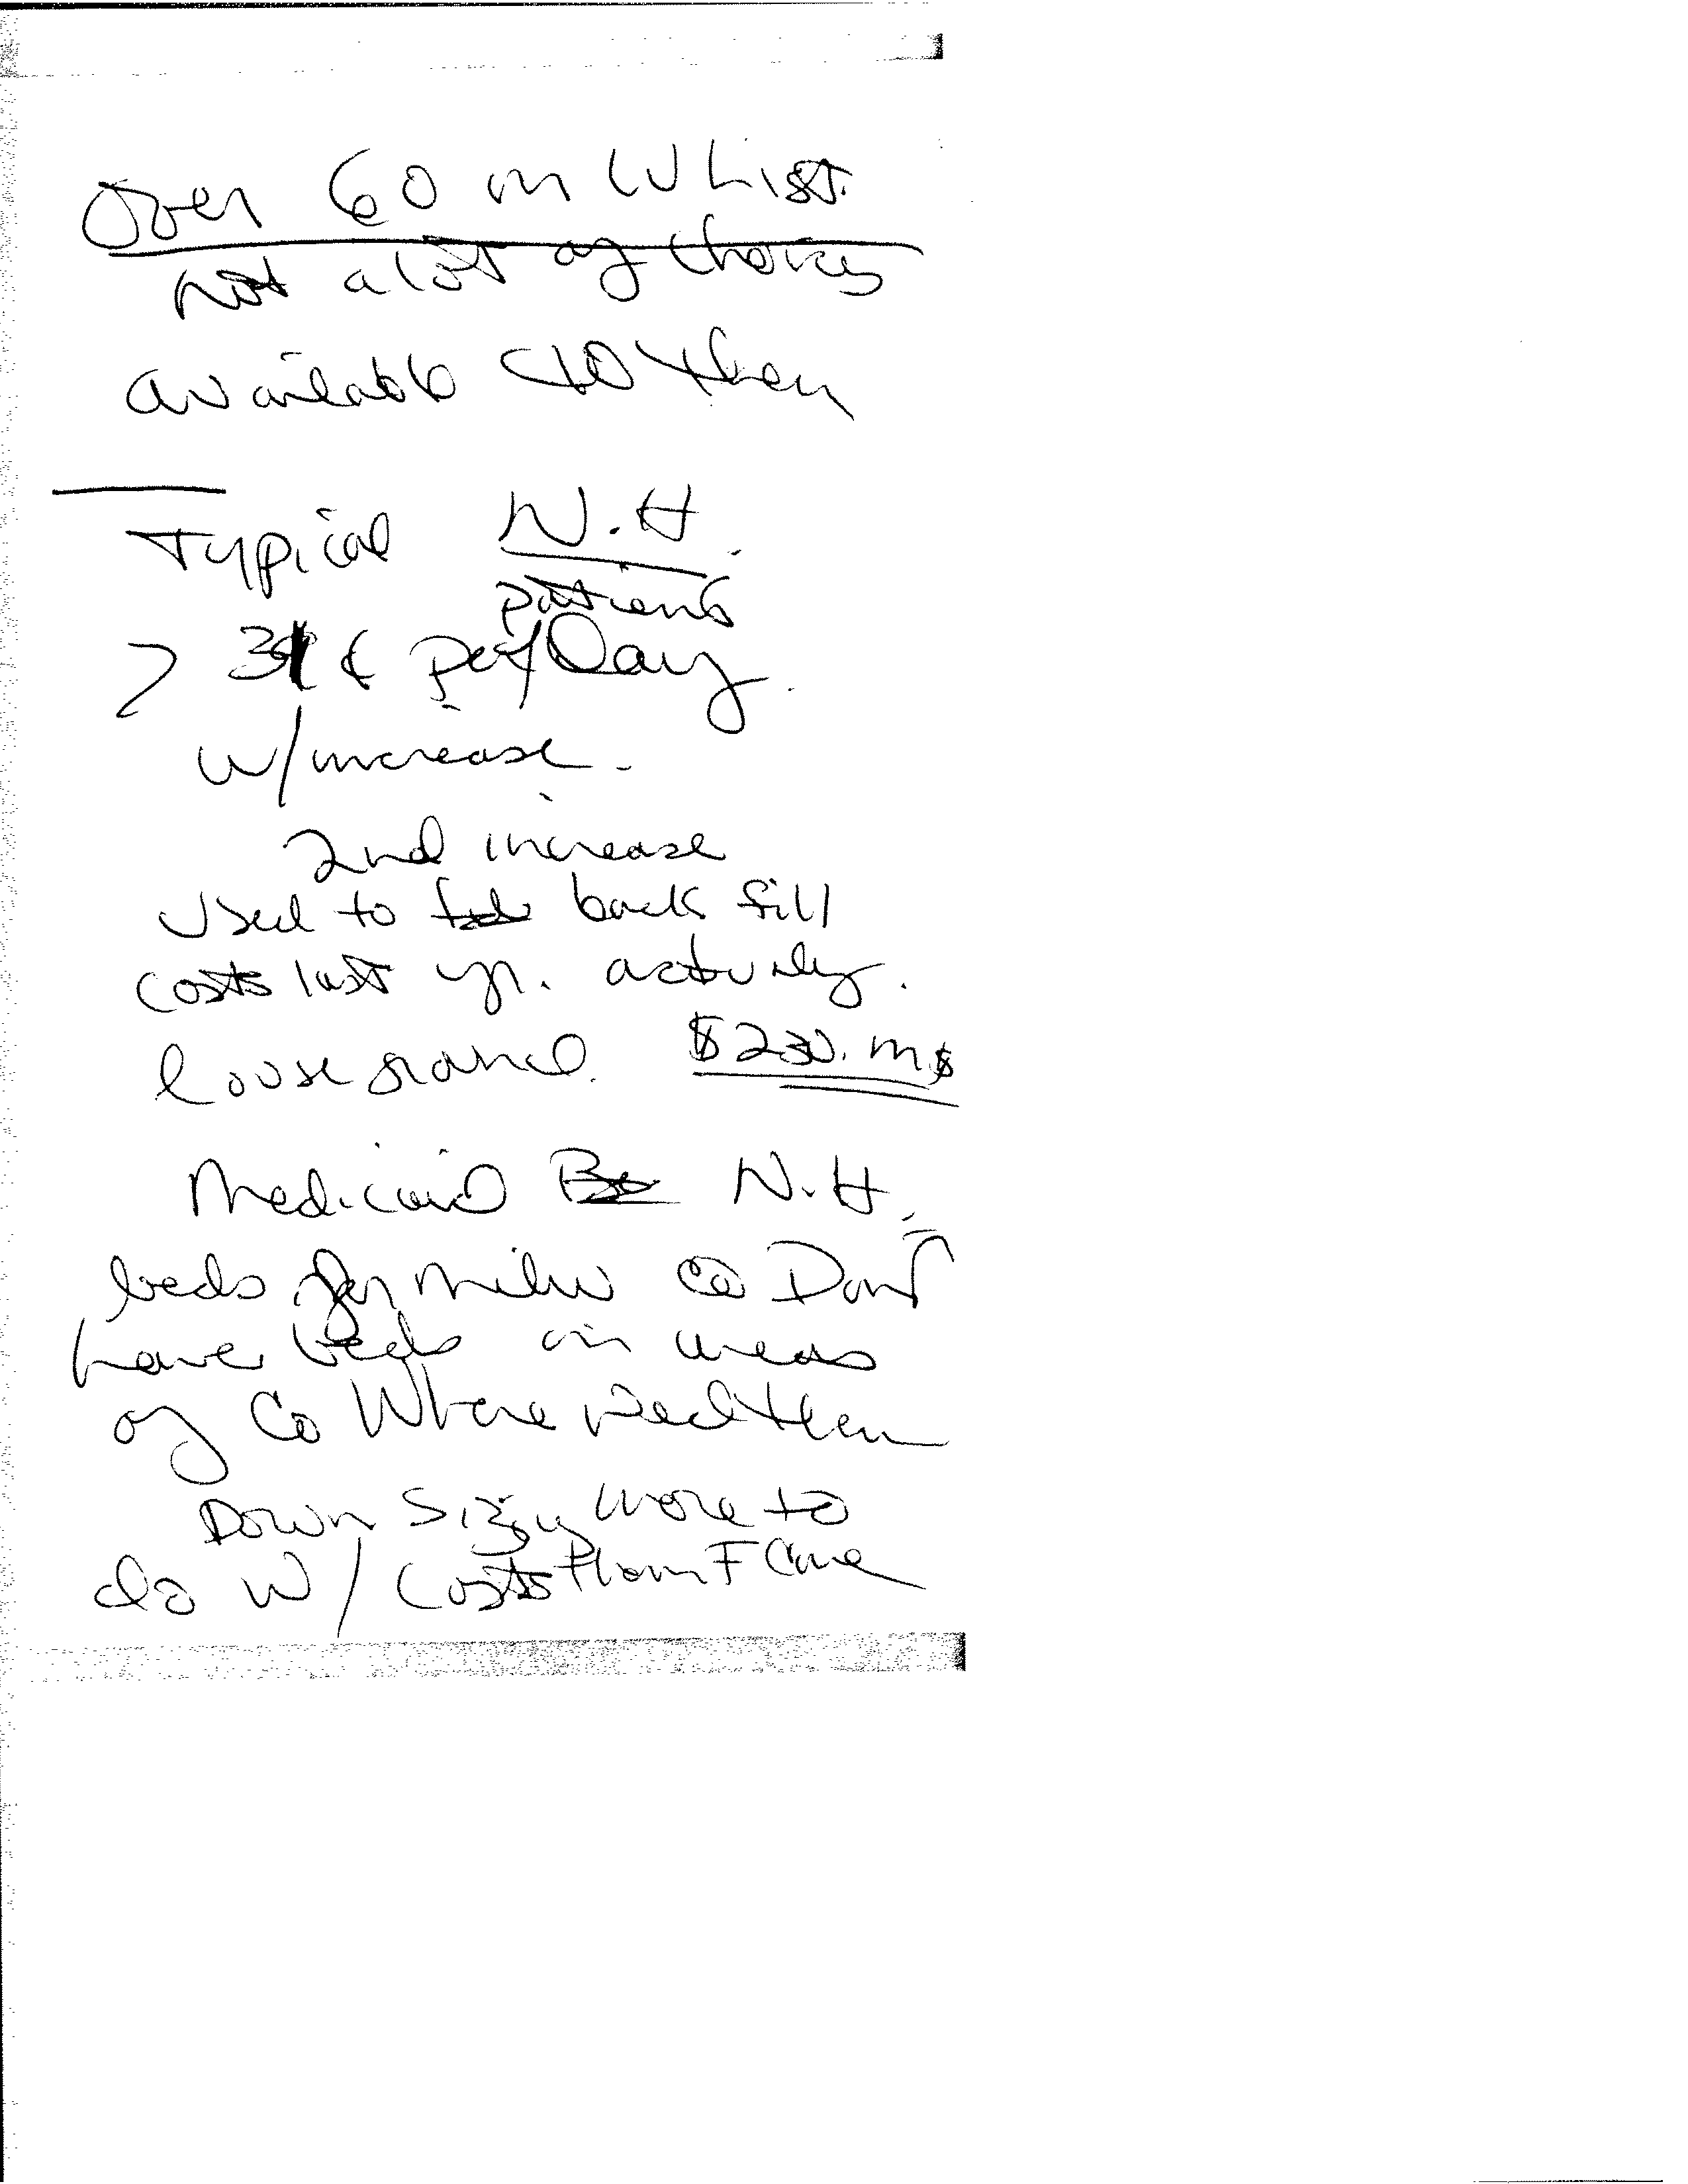 Over 60 on W List.
not a lot of choices
available to them
Typical N.H.
patient
> 39 ¢ per/Day.
w/increase.
2nd increase
Used to back fill
costs last yr. actually.
loose ground. $230. m $
Medicaid N.H.
beds for Milw Co Don't
have beds in areas
of Co Where need them
Down Sizing more to
do w/ costs than F Care